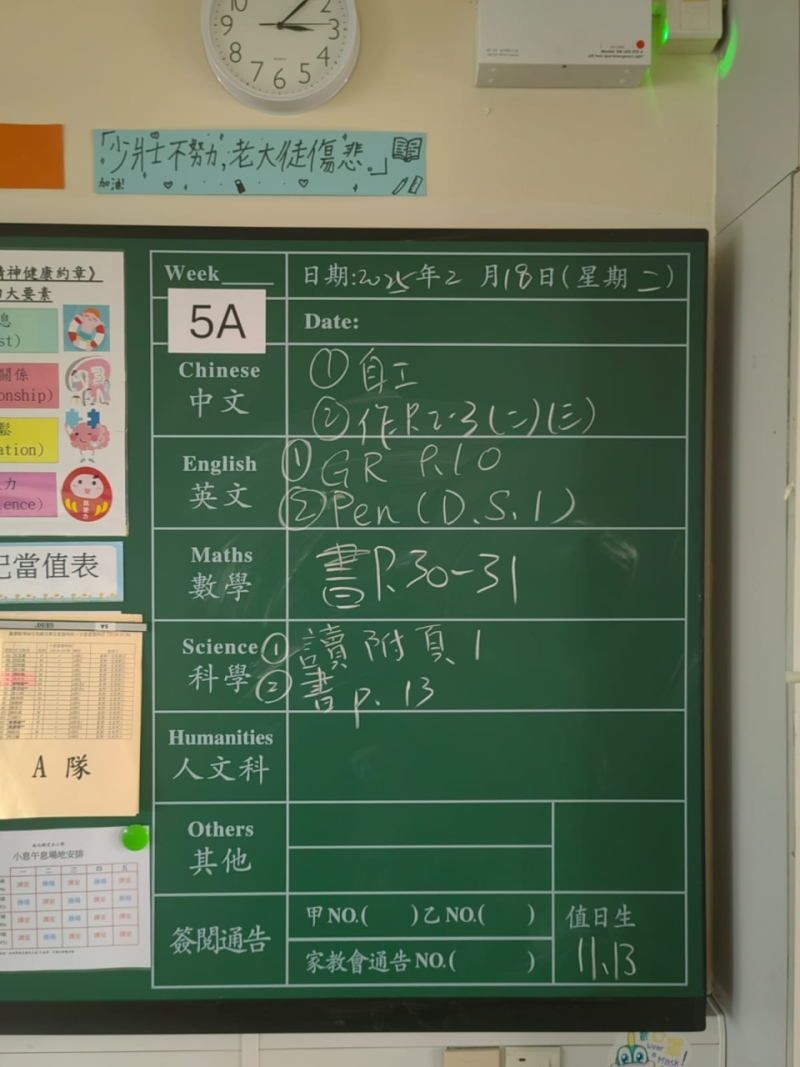 10
2
9
3
8
4
7
6
5
「少壯不努力,老大徒傷悲。」
加油!
精神健康約章》
大要素
st)
關係
onship)
鬆
ation)
力
ience)
記當值表
A 隊
小息午息場地安排
一 二 三 四 五
Week
日期:2025年2月18日(星期二)
5A
Date:
Chinese
中文
①自工
②作P.2-3(二)(三)
English
英文
①GR P.10
②Pen(D.S.1)
Maths
數學
書P.30-31
Science
科學
①讀附頁1
②書p.13
Humanities
人文科
Others
其他
簽閱通告
甲NO.( )乙NO.( )
家教會通告NO.( )
值日生
11,13
Wear
a Mask!